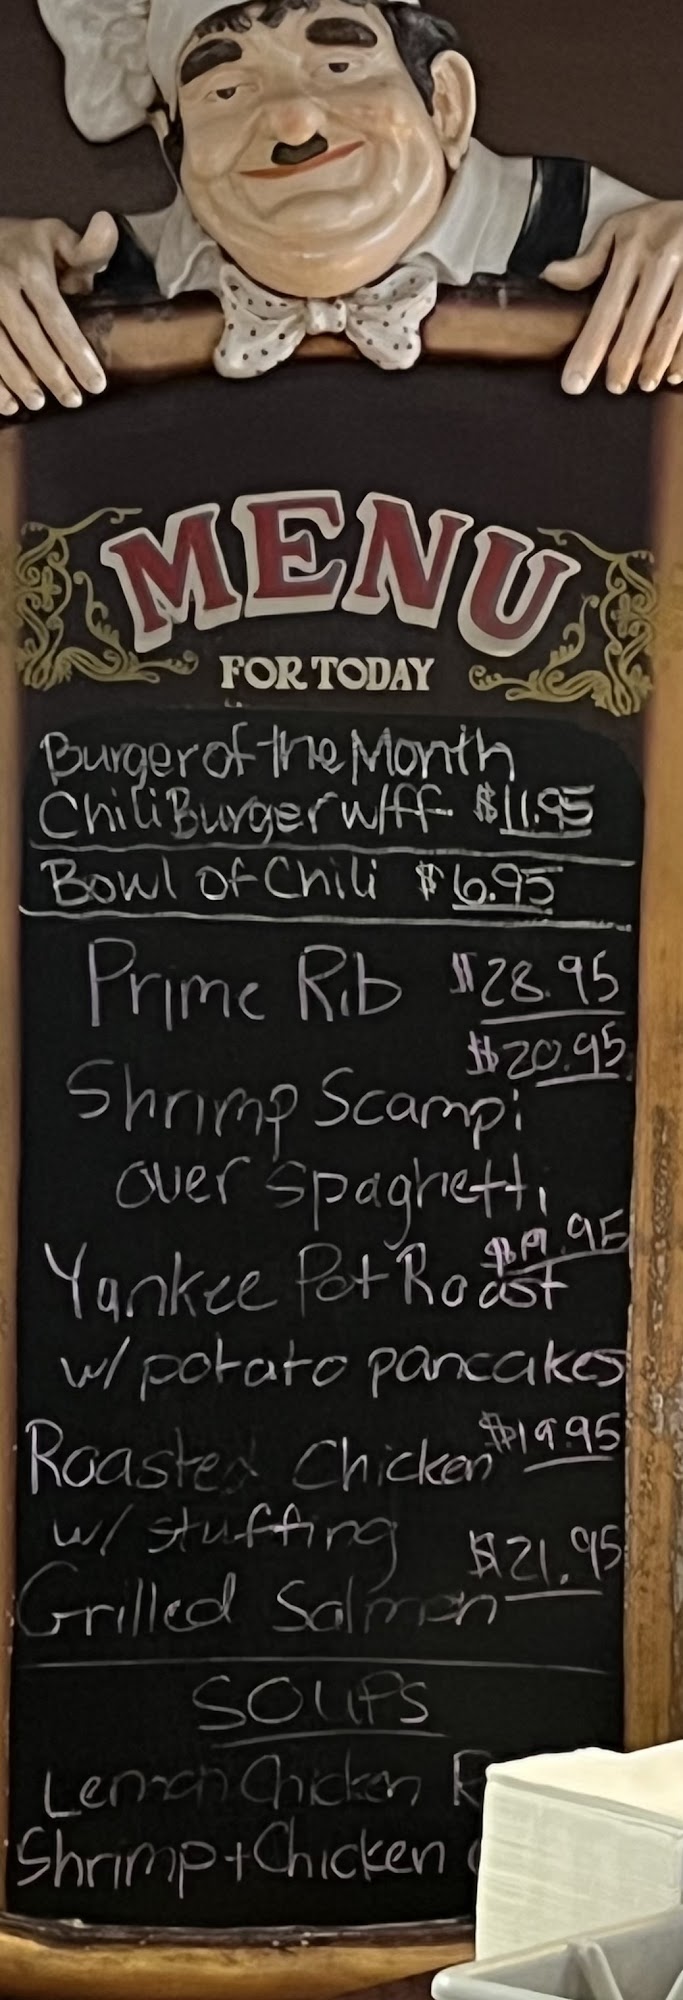 MENU
FOR TODAY
Burger of the Month
Chili Burger w/ff $11.95
Bowl of Chili $6.95
Prime Rib $28.95
$20.95
Shrimp Scampi
over spaghetti
$19.95
Yankee Pot Roast
w/ potato pancakes
$19.95
Roasted Chicken
w/ stuffing
$21.95
Grilled Salmon
SOUPS
Lemon Chicken
Shrimp + Chicken